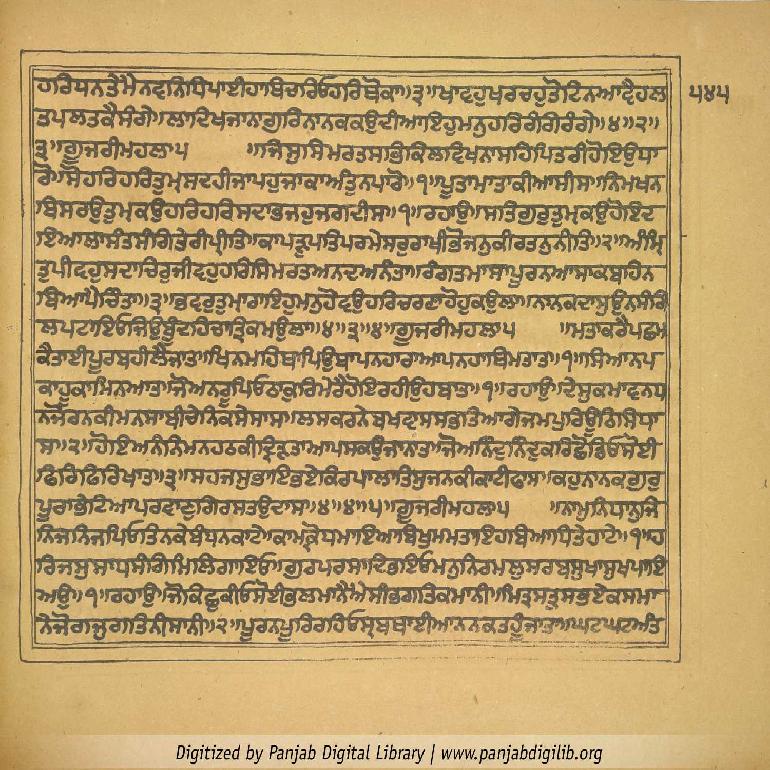 ਹਰਿਧਨਤੇਮੈਨਵਨਿਧਿਪਾਈਹਾਥਿਚਰਿਓਹਰਿਥੋਕਾ॥੩॥ਖਾਵਹੁਖਰਚਹੁਤੋਟਿਨਆਵੈਹਲ
੫੪੫
ਤਪਲਤਕੈਸੰਗੇ॥ਲਾਦਿਖਜਾਨਾਗੁਰਿਨਾਨਕਕਉਦੀਆਇਹੁਮਨੁਹਰਿਰੰਗਿਰੰਗੇ॥੪॥੨॥
੩॥ਗੂਜਰੀਮਹਲਾ੫ ॥ਜਿਸੁਸਿਮਰਤਸਭਿਕਿਲਵਿਖਨਾਸਹਿਪਿਤਰੀਹੋਇਉਧਾ
ਰੋ॥ਸੋਹਰਿਹਰਿਤੁਮ੍ਸਦਹੀਜਾਪਹੁਜਾਕਾਅੰਤੁਨਪਾਰੋ॥੧॥ਪੂਤਾਮਾਤਾਕੀਆਸੀਸਾ॥ਨਿਮਖਨ
ਬਿਸਰਉਤੁਮ੍ਕਉਹਰਿਹਰਿਸਦਾਭਜਹੁਜਗਦੀਸ॥੧॥ਰਹਾਉ॥ਸਤਿਗੁਰੁਤੁਮ੍ਕਉਹੋਇਦ
ਇਆਲਾਸੰਤਸੰਗਿਤੇਰੀਪ੍ਰੀਤਿ॥ਕਾਪੜੁਪਤਿਪਰਮੇਸਰੁਰਾਖੀਭੋਜਨੁਕੀਰਤਨੁਨੀਤਿ॥੨॥ਅੰਮ੍ਰਿ
ਤੁਪੀਵਹੁਸਦਾਚਿਰੁਜੀਵਹੁਹਰਿਸਿਮਰਤਅਨਦਅਨੰਤਾ॥ਰੰਗਤਮਾਸਾਪੂਰਨਆਸਾਕਬਹਿਨ
ਬਿਆਪੈਚਿੰਤਾ॥੩॥ਭਵਰੁਤੁਮਾਰਾਇਹੁਮਨੁਹੋਵਉਹਰਿਚਰਣਾਹੋਹੁਕਉਲਾ॥ਨਾਨਕਦਾਸੁਉਨਸੰਗਿ
ਲਪਟਾਇਓਜਿਉਬੂੰਦਹਿਚਾਤ੍ਰਿਕਮਉਲਾ॥੪॥੩॥੪॥ਗੂਜਰੀਮਹਲਾ੫ ॥ਮਤਾਕਰੈਪਛਮ
ਕੈਤਾਈਪੂਰਬਹੀਲੈਜਾਤ॥ਖਿਨਮਹਿਥਾਪਿਉਥਾਪਨਹਾਰਾਆਪਨਹਾਥਿਮਤਾਤ॥੧॥ਸਿਆਨਪ
ਕਾਹੂਕਾਮਿਨਆਤ॥ਜੋਅਨਰੂਪਿਓਠਾਕੁਰਿਮੇਰੈਹੋਇਰਹੀਉਹਬਾਤ॥੧॥ਰਹਾਉ॥ਦੇਸੁਕਮਾਵਨਧ
ਨਜੋਰਨਕੀਮਨਸਾਬੀਚੇਨਿਕਸੇਸਾਸ॥ਲਸਕਰਨੇਬਖਵਾਸਸਭਤਿਆਗੇਜਮਪੁਰਿਊਠਿਸਿਧਾ
ਸ॥੨॥ਹੋਇਅਨੰਨਿਮਨਹਠਕੀਦ੍ਰਿੜਤਾਆਪਸਕਉਜਾਨਾਤ॥ਜੋਅਨਿੰਦੁਨਿੰਦੁਕਰਿਛੋਡਿਓਸੋਈ
ਫਿਰਿਫਿਰਿਖਾਤ॥੩॥ਸਹਜਸੁਭਾਇਭਏਕਿਰਪਾਲਾਤਿਸੁਜਨਕੀਕਾਟੀਫਾਸ॥ਕਹੁਨਾਨਕਗੁਰੁ
ਪੂਰਾਭੇਟਿਆਪਰਵਾਣੁਗਿਰਸਤਉਦਾਸ॥੪॥੪॥੫॥ਗੂਜਰੀਮਹਲਾ੫ ॥ਨਾਮੁਨਿਧਾਨੁਜਿ
ਨਿਜਨਿਜਪਿਓਤਿਨਕੇਬੰਧਨਕਾਟੇ॥ਕਾਮਕ੍ਰੋਧਮਾਇਆਬਿਖੁਮਮਤਾਇਹਬਿਆਧਿਤੇਹਾਟੇ॥੧॥ਹ
ਰਿਜਸੁਸਾਧਸੰਗਿਮਿਲਿਗਾਇਓ॥ਗੁਰਪਰਸਾਦਿਭਇਓਮਨੁਨਿਰਮਲੁਸਰਬਸੁਖਾਸੁਖਪਾਇ
ਅਉ॥੧॥ਰਹਾਉ॥ਜੋਕਿਛੁਕੀਓਸੋਈਭਲਮਾਨੈਐਸੀਭਗਤਿਕਮਾਨੀ॥ਮਿਤ੍ਰਸਤ੍ਰੁਸਭਏਕਸਮਾ
ਨੇਜੋਗਜੁਗਤਿਨੀਸਾਨੀ॥੨॥ਪੂਰਨਪੂਰਿਰਹਿਓਸ੍ਰਬਥਾਈਆਨਨਕਤਹੂੰਜਾਤਾ॥ਘਟਘਟਅੰਤ
Digitized by Panjab Digital Library | www.panjabdigilib.org